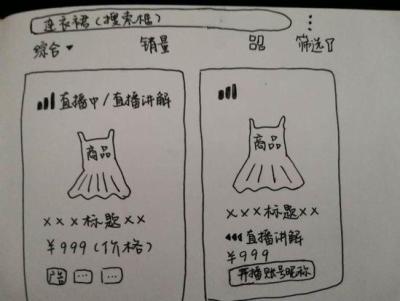 连衣裙(搜索框)
综合 销量 筛选
直播中/直播讲解
商品
×××标题××
￥999(价格)
商品
×××标题××
直播讲解
￥999
开播账号昵称